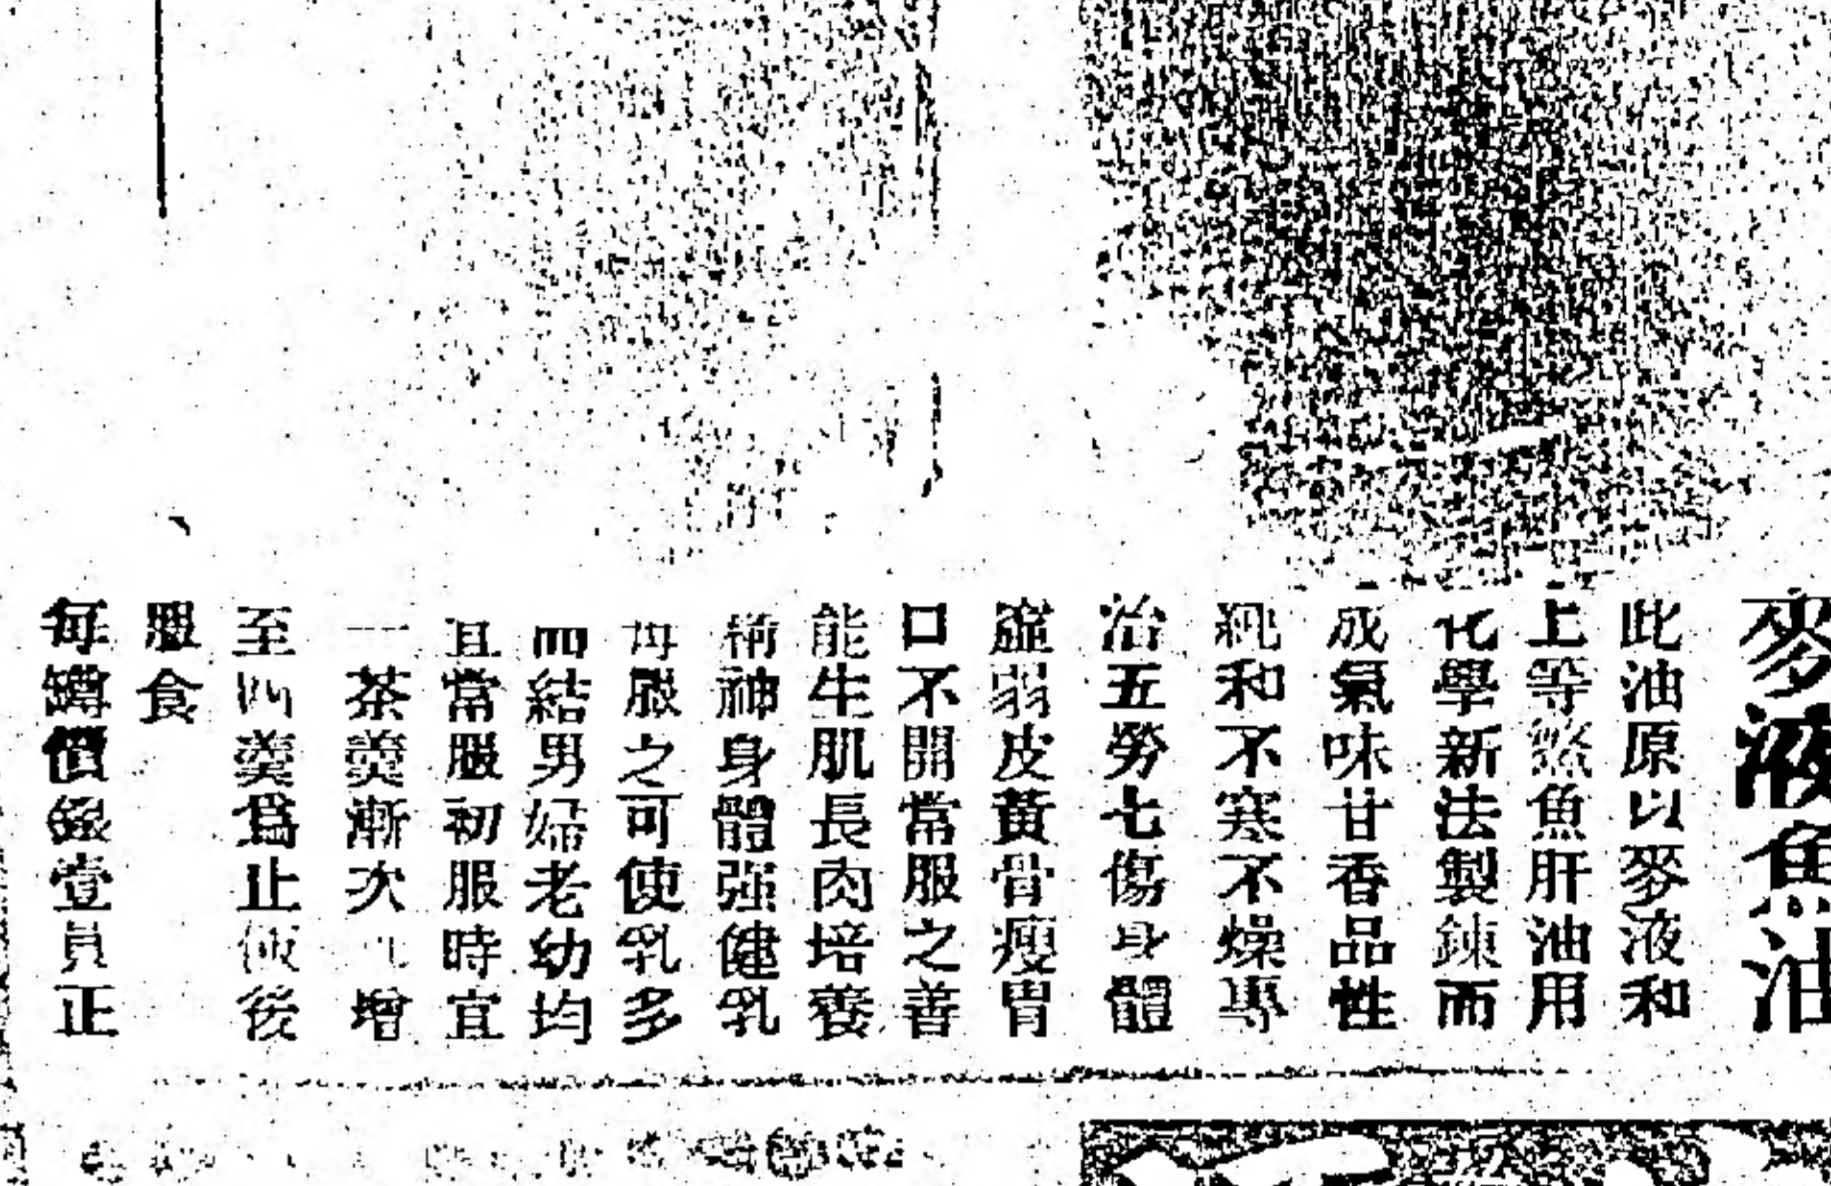 麥液魚油
此油原以麥液和
上等鰵魚肝油用
化學新法製鍊而
成氣味甘香品性
純和不寒不燥專
治五勞七傷身體
虛弱皮黃骨瘦胃
口不開常服之善
能生肌長肉培養
精神身體强健乳
母服之可使乳多
而結男婦老幼均
宜常服初服時宜
一茶羮漸次增
至四羮爲止飯後
服食
每罇價銀壹員正